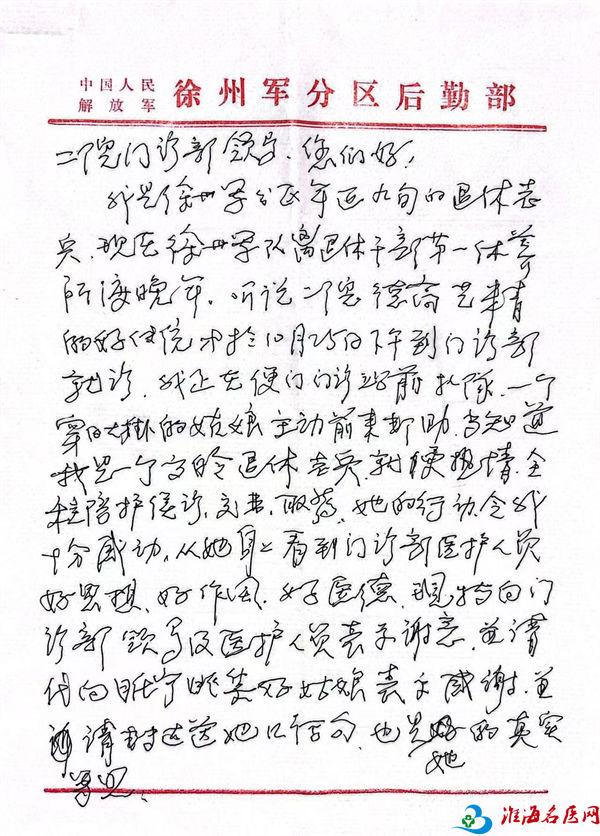 中国人民
解放军 徐州军分区后勤部
二院门诊部领导、您们好!
我是徐州军分区年近九旬的退休老
兵,现在徐州军队离退休干部第一休养
所渡晚年。听说二院德高艺精
的好传统才于10月25日下午到门诊部
就诊,我正在便门门诊站前排队,一个
穿白大褂的姑娘主动前来帮助,当知道
我是一个高龄退休老兵,就便热情全
程陪护候诊、交费、取药。她的行动令我
十分感动,从她身上看到门诊部医护人员
好思想、好作风、好医德,现特向门
诊部领导及医护人员表示谢意,並请
代向 好姑娘表示感谢,並
请 送她 ,也是她的真实
写照。
淮海名医网